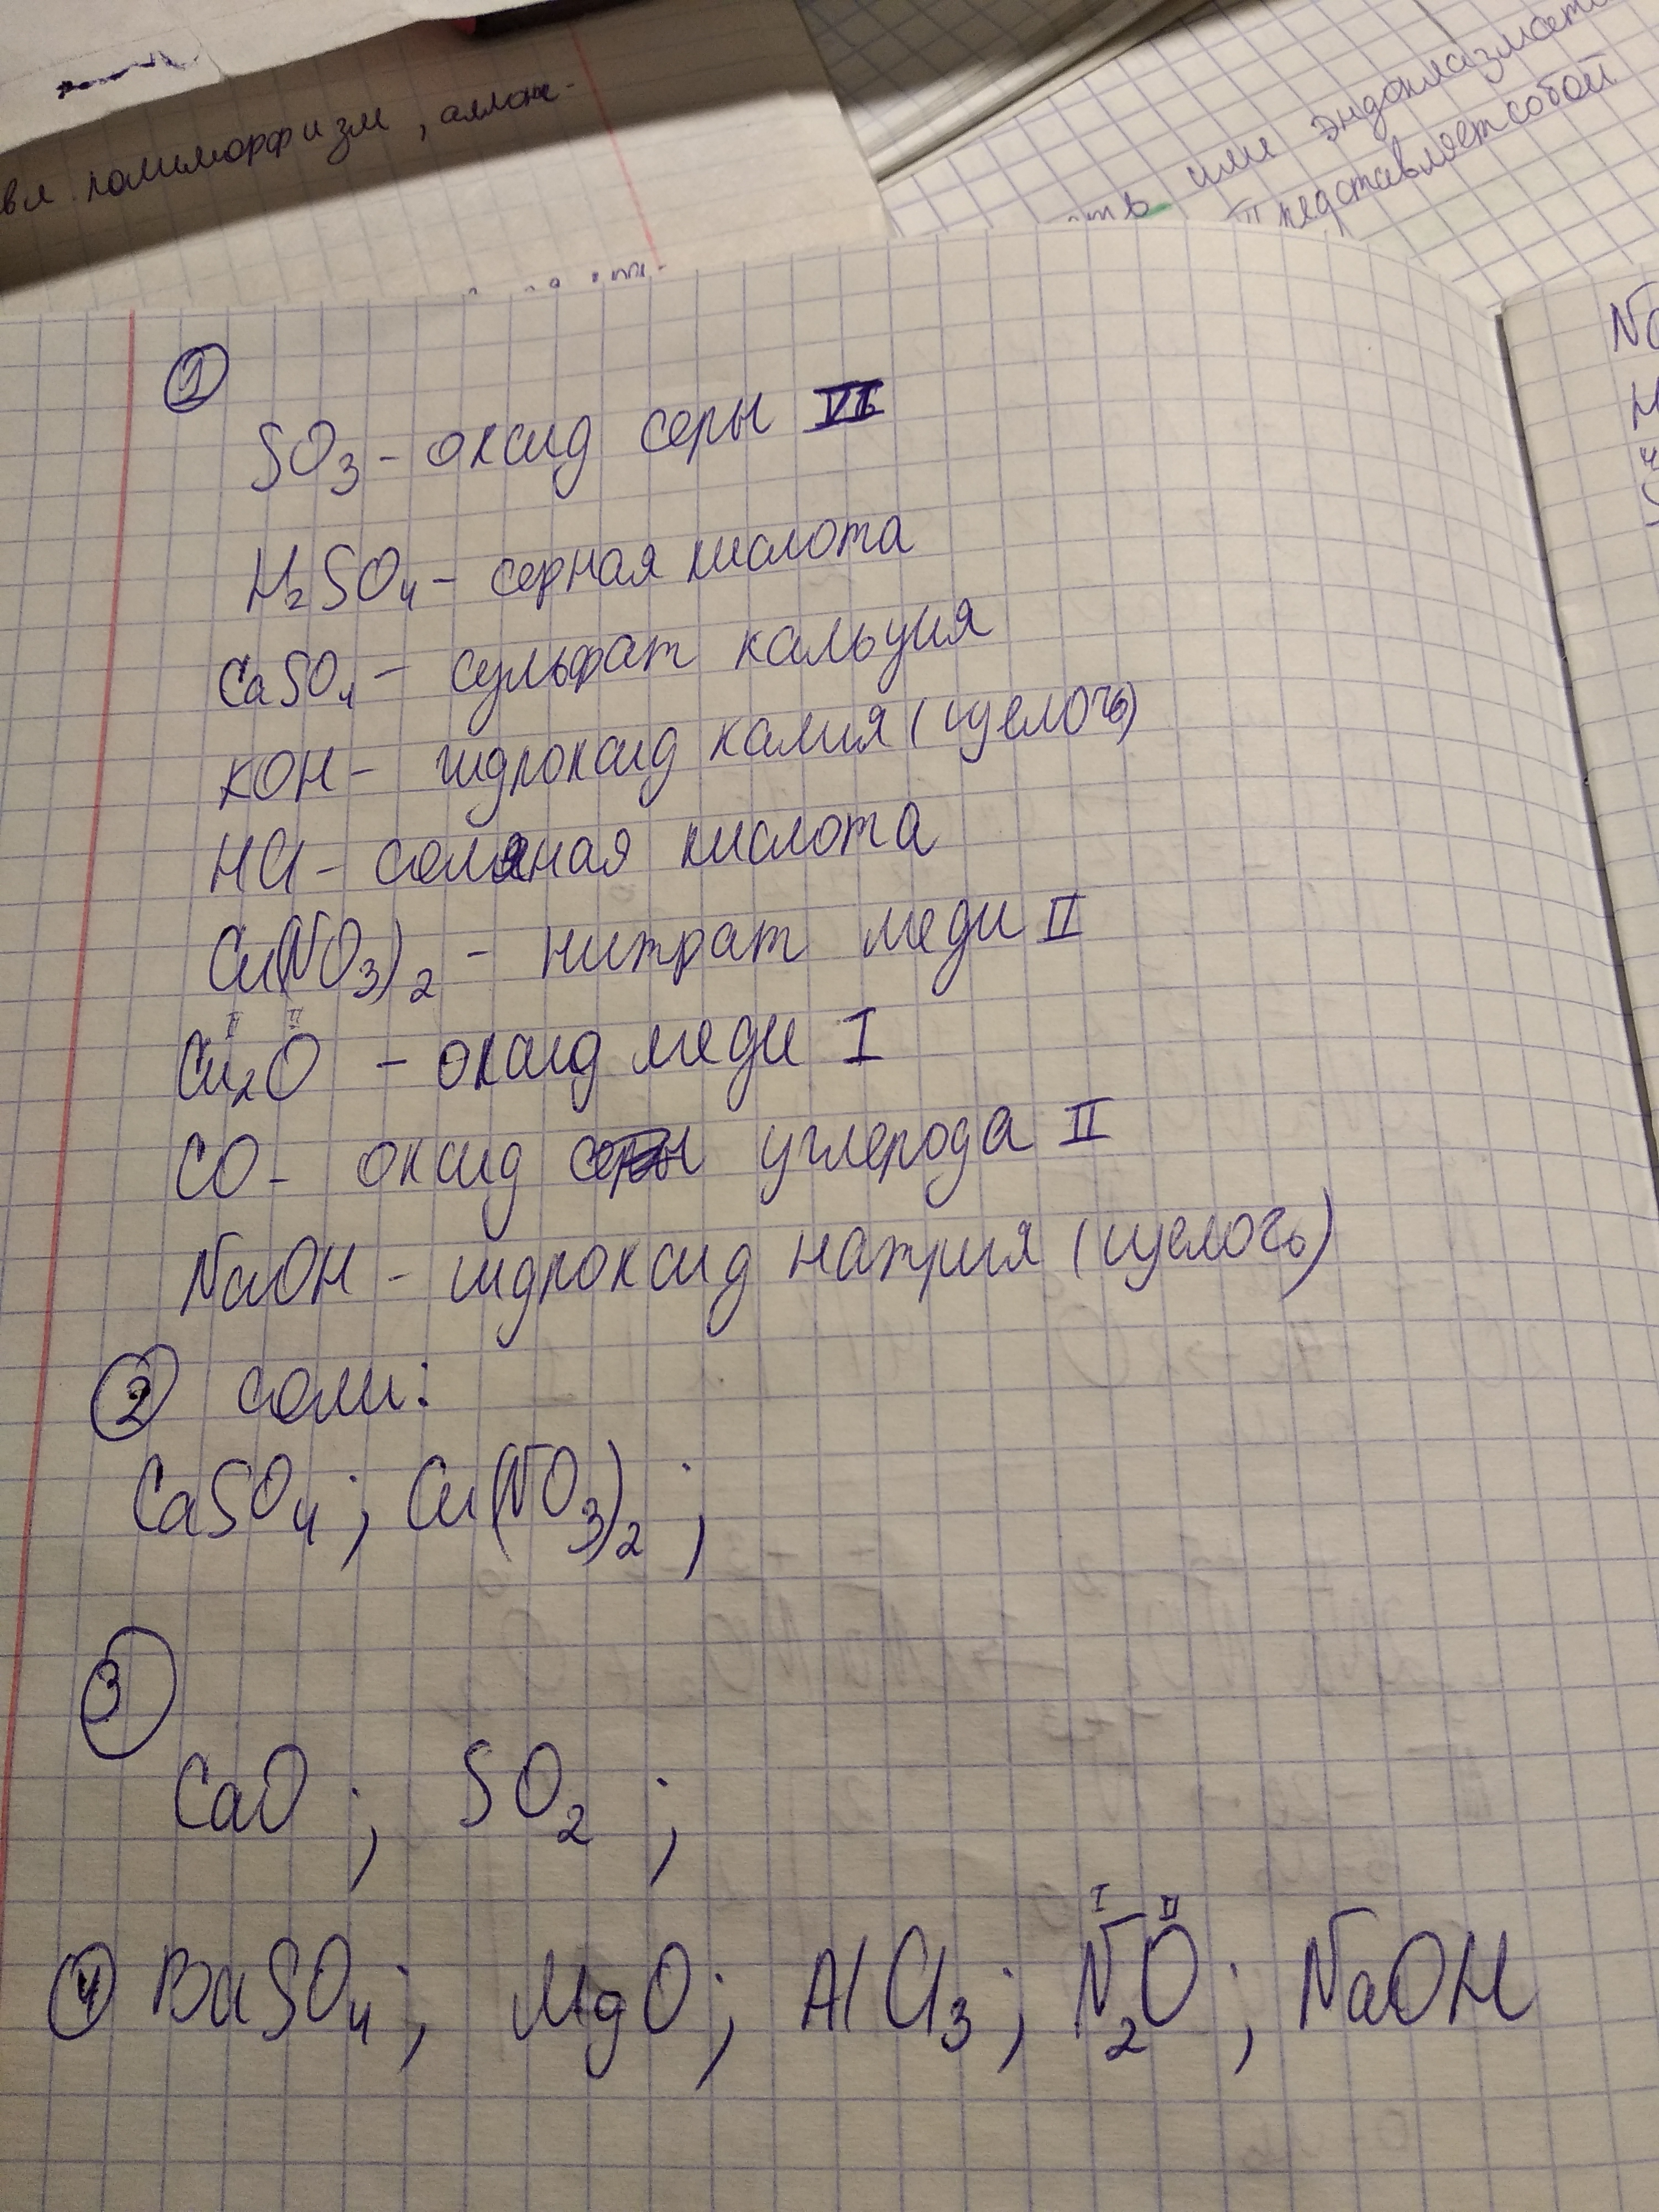 вл. полиморфизм, аллоп-
или эндоплазмати
представляет собой
①
SO₃ - оксид серы VI
H₂SO₄ - серная кислота
CaSO₄ - сульфат кальция
KOH - гидроксид калия (щелочь)
HCl - соляная кислота
Cu(NO₃)₂ - нитрат меди II
II II
Cu₂O - оксид меди I
CO - оксид серы углерода II
NaOH - гидроксид натрия (щелочь)
② соли:
CaSO₄ ; Cu(NO₃)₂ ;
③
CaO ; SO₂ ;
I II
④ BaSO₄ ; MgO ; AlCl₃ ; N₂O ; NaOH